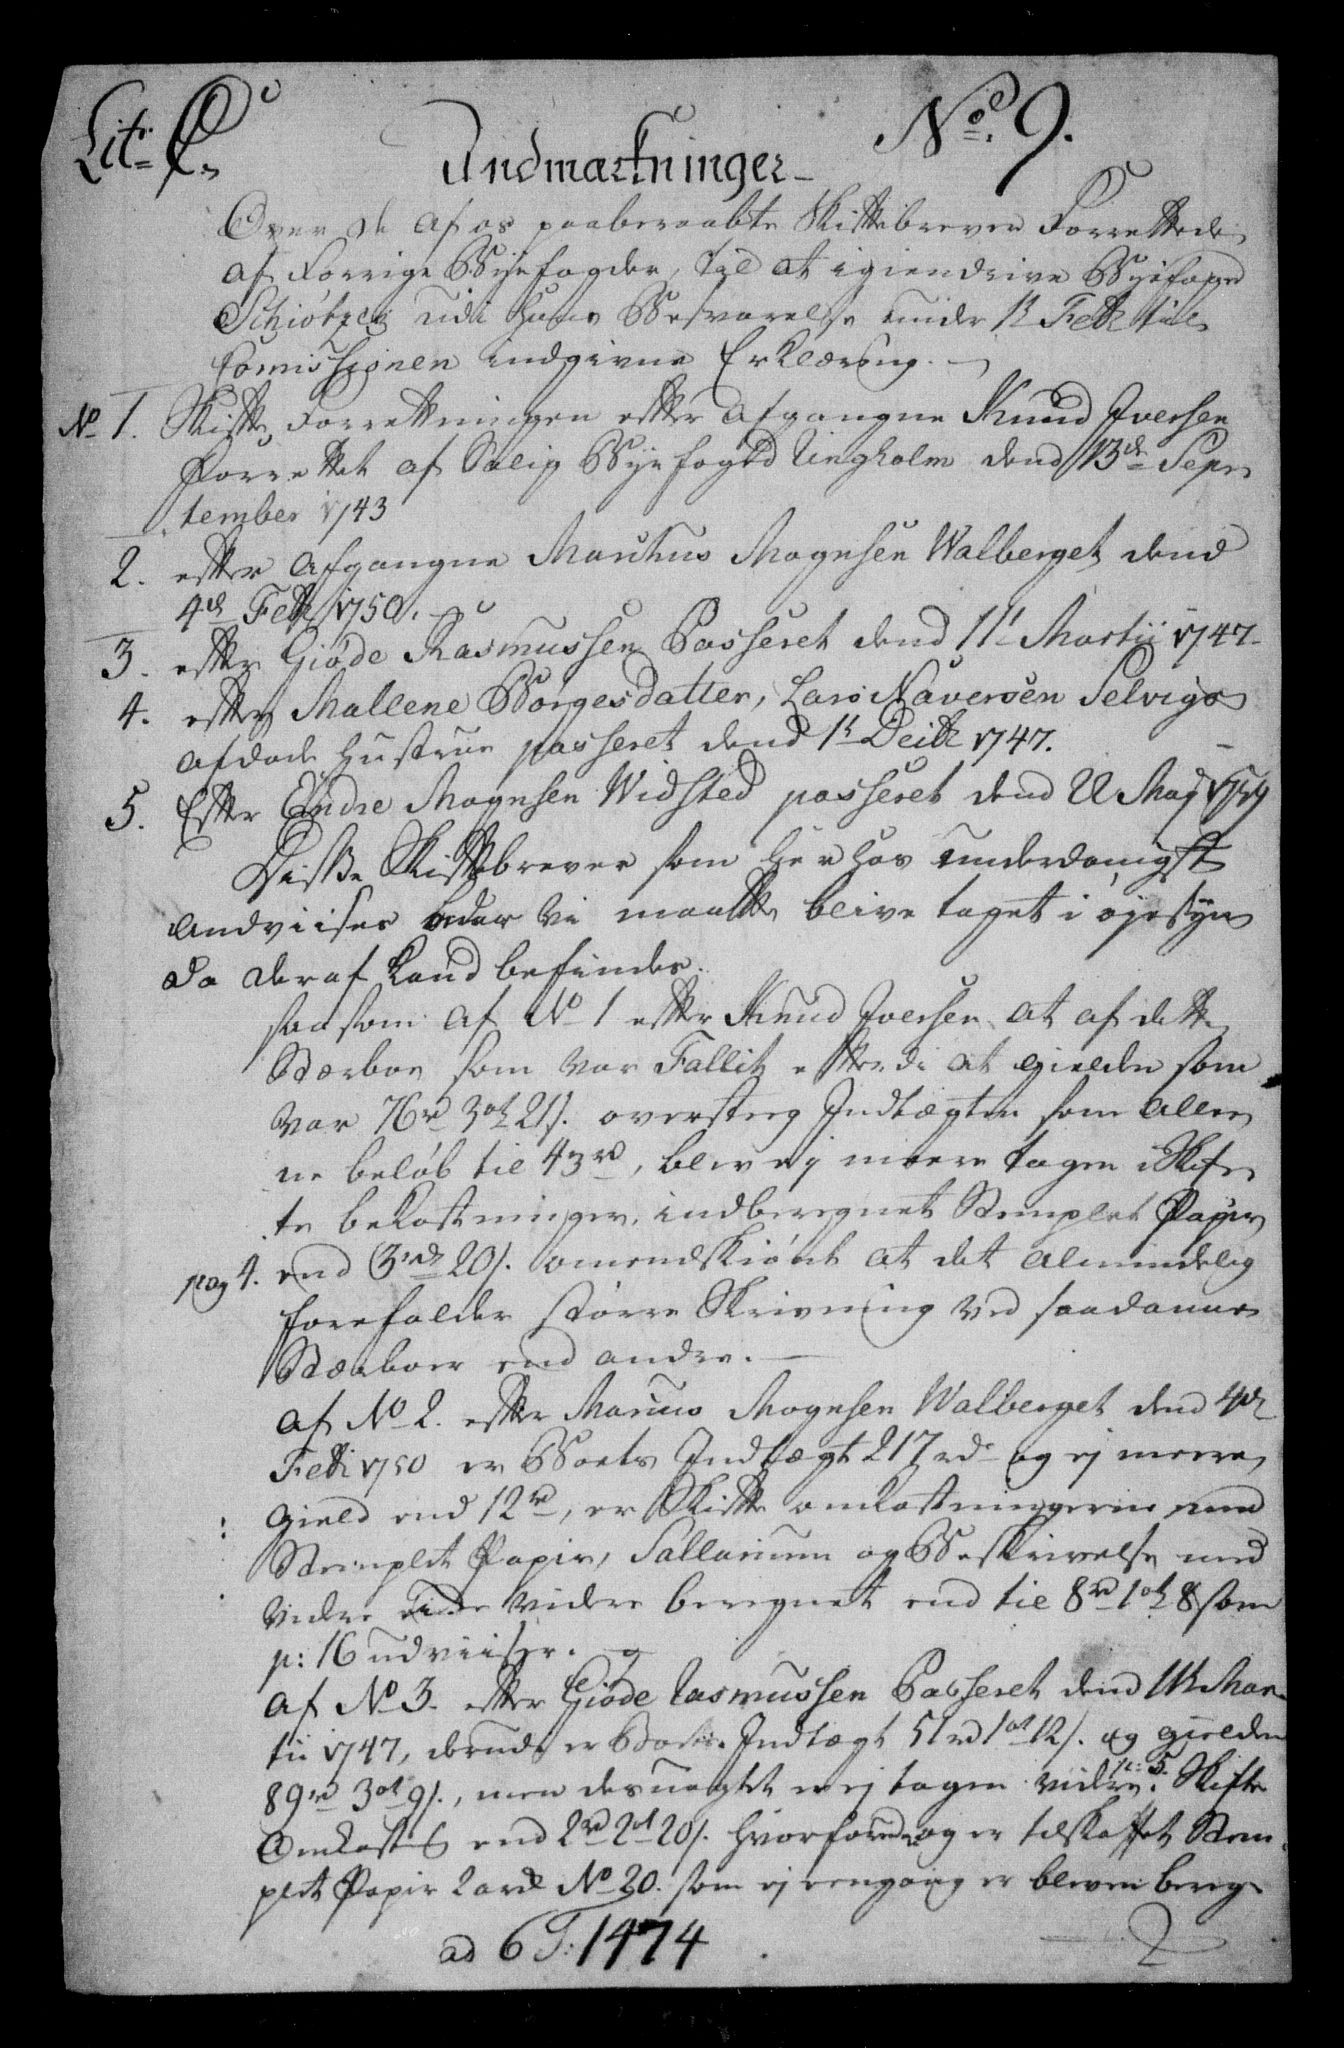 Lit: C. No. 9.
Andmærkninger
Over de af os paaberaabte Skiftebrever Forrettede
af Forrige Byefogder, til at igiendrive Byefoged
Schiøtzes udi hans Besvarelse under 12 Febr til
Comissionen indgivne Erklæring.
No 1. Skifte Forrettningen efter afgangne Knud Iversen
Forrettet af Salig Byefoged Ungholm dend 13de Sep-
tember 1743
2. efter afgangne Marthus Mognsen Walberget dend
4de Febr 1750.
3. efter Giøde Rasmussen Passeret dend 11 Martii 1747
4. efter Mallene Borgesdatter, Lars Naversen Selvigs
afdøde Hustrue passeret dend 1 Decbr 1747.
5. Efter Endre Mognsen Widsted passeret dend 22 Maj 1759
Disse Skiftebrever som her hos underdanigst
andviises beder vi maatte blive taget i øjesyn
da deraf kand befindes.
saasom af No 1 efter Knud Iversen at af dette
Stærboe som var Fallit efterdi at gielden som
var 76rd 3ort 21s. oversteg Indtægten som alle-
ne beløb til 43rd, blev ej meere tagen i Skif-
te bekostninger, indberegnet Stemplet Papir
pag 4. end 3rd 20s. omendskiønt at det almindelig
forefalder større Skrivning ved saadanne
Stærboer end andre.
af No 2. efter Marcus Mognsen Walberget dend 4de
Febr 1750 er Boets Indtægt 217 rd og ej meere
Gield end 12rd, er Skifte omkostningerne med
Stemplet Papir, Sallarium og Beskrivelse med
videre vidre beregnet end til 8rd 1ort 8s som
p: 16 udviiser.
af No 3. efter Giøde Rasmussen Passeret dend 11 Mar-
tii 1747, derudi er Boets Indtægt 51rd 1ort 12s. og gielden
89rd 3ort 9s., men desuagtet er ej tagen vidre p: 5. Skifte
Omkostn end 2rd 2ort 20s. hvorforuden og er tilskaffet Stem-
plet Papir 2 ark No 20. som ej eengang er bleven bereg-
ad 6 T: 1474